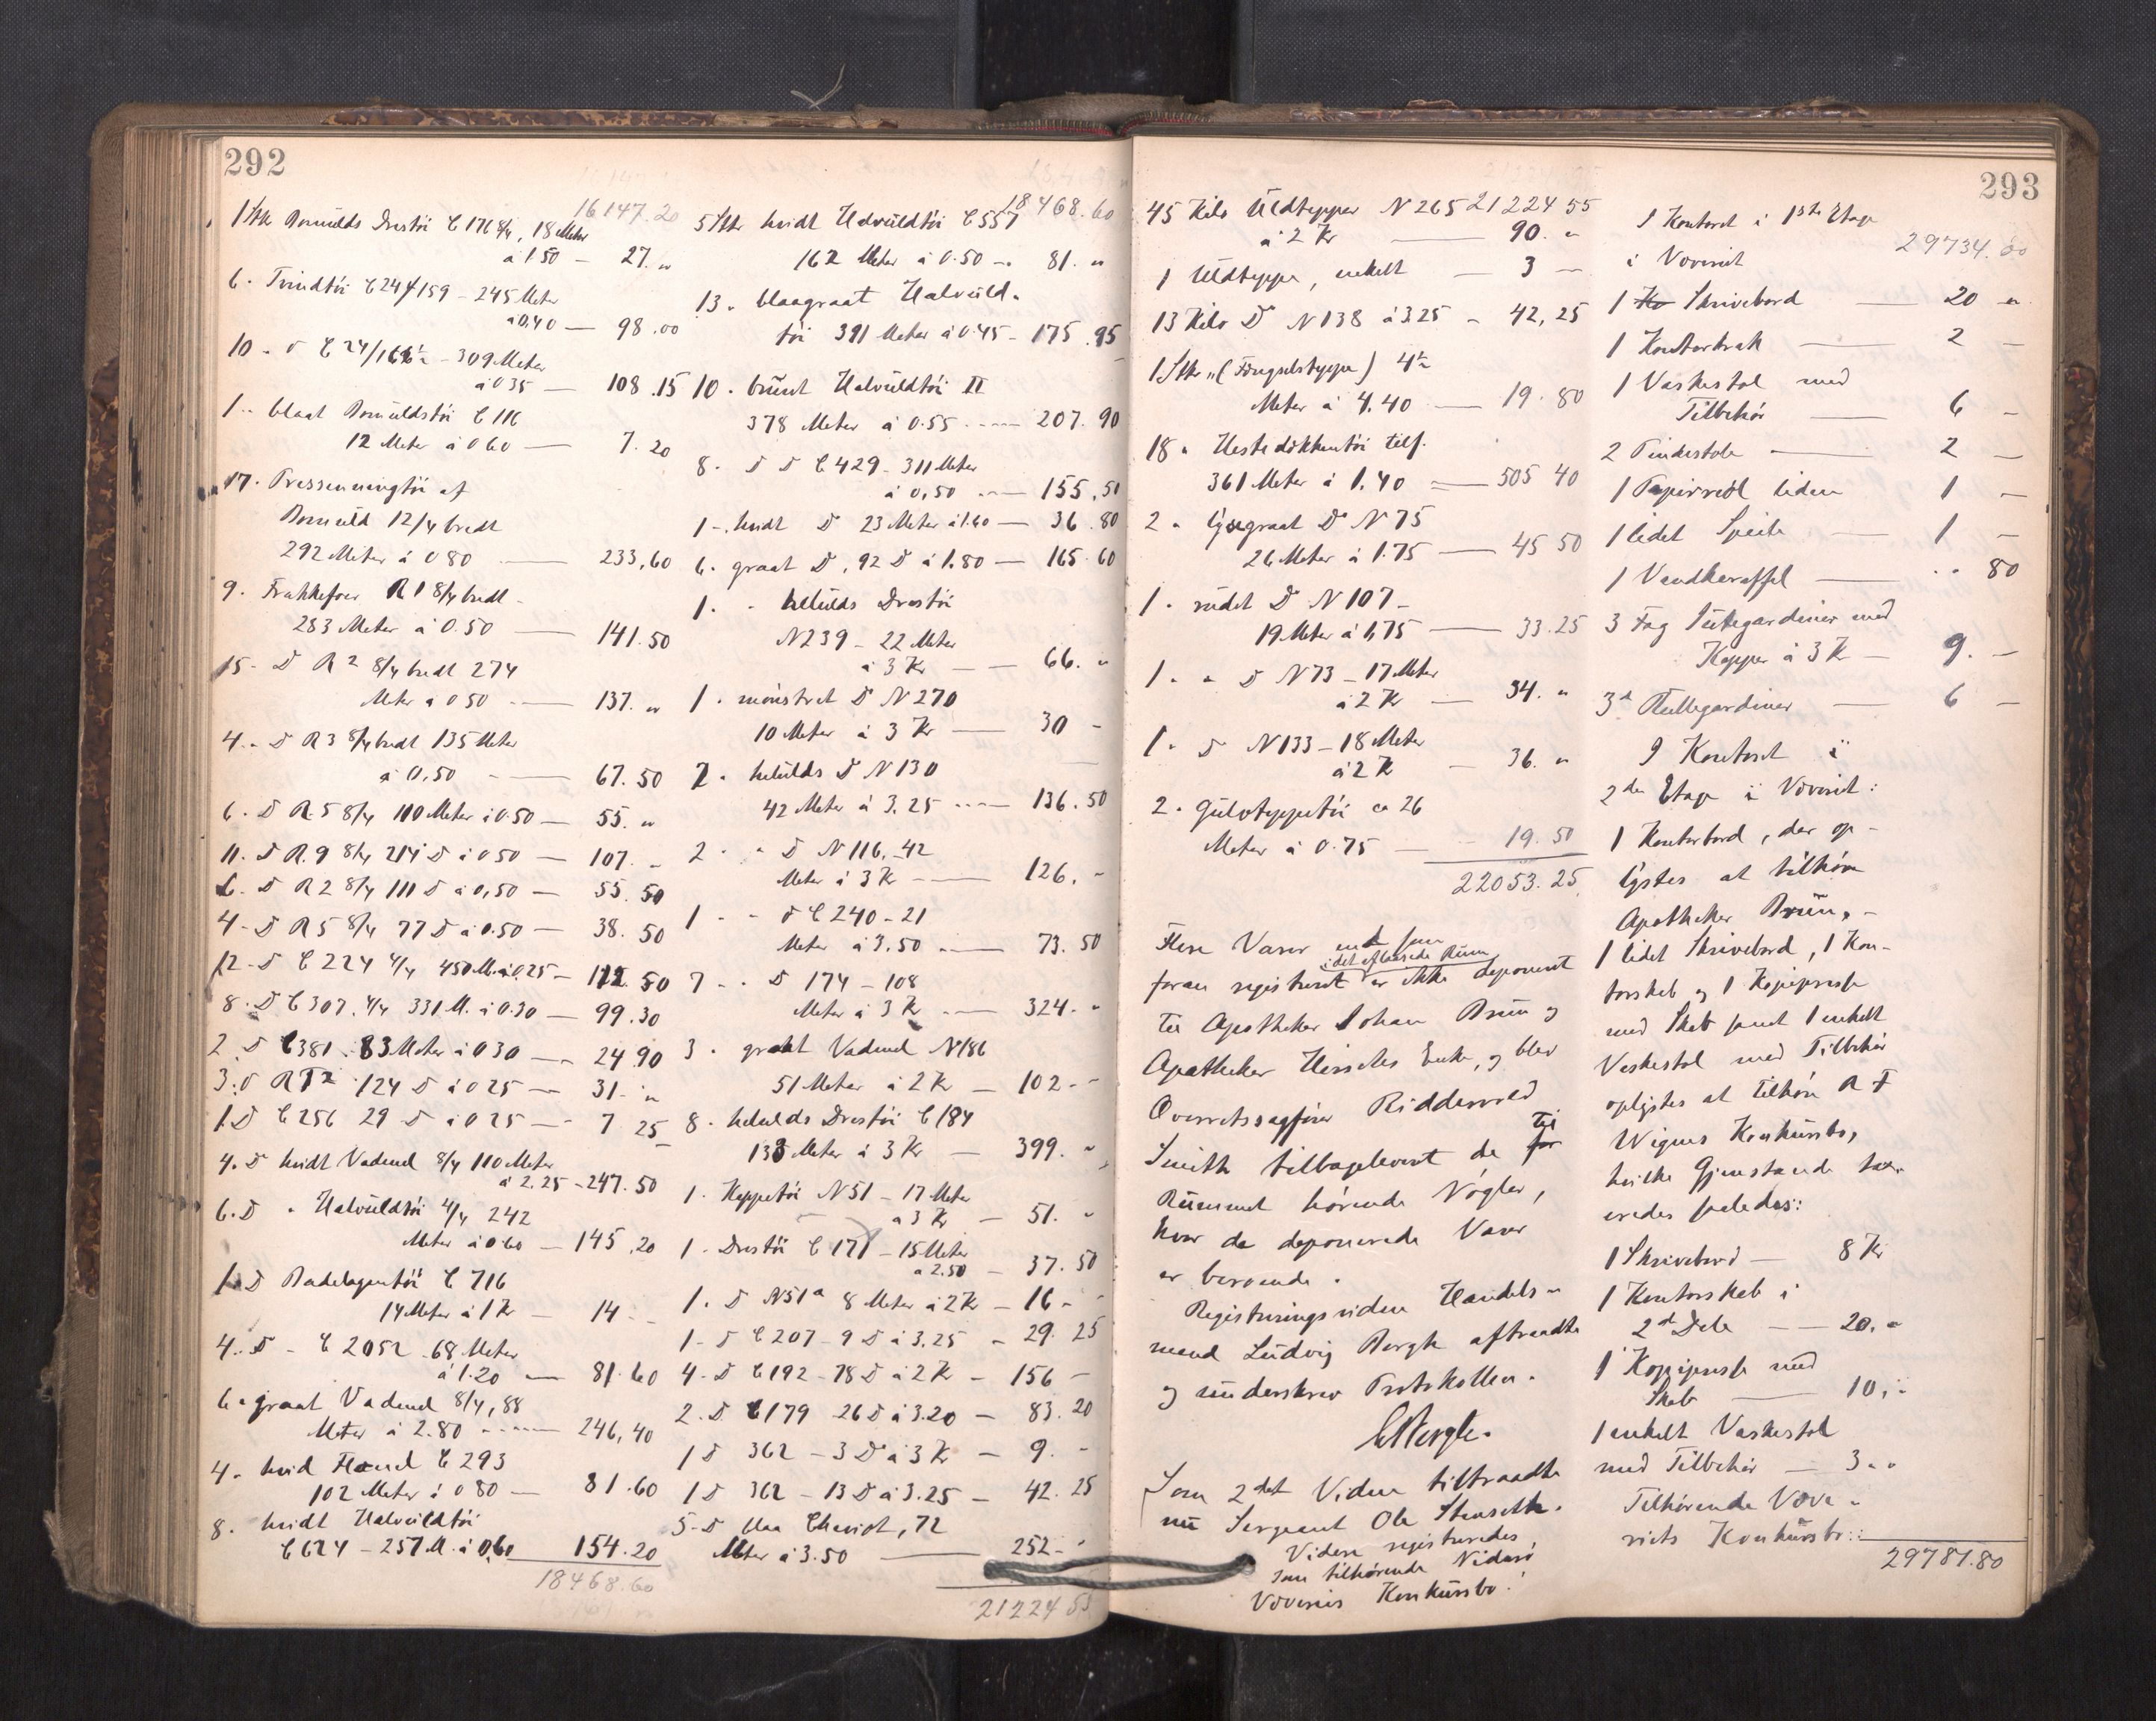 292
16147.20
1 Stk Bomulds Drestöi C 176 8/4, 18 Meter
á 1.50 — 27. "
6 - Tvindtöi C 247/159 - 245 Meter
á 0.40 — 98.00
10 - D C 24/166½ - 309 Meter
á 0 35 — 108.15
1 - blaat Bomuldstöi C 116
12 Meter á 0 60 — 7.20
17 - Pressenningtöi af
Bomuld 12/4 bredt
292 Meter á 0 80 — 233,60
9 - Frakkefoer R 1 8/4 bredt -
283 Meter á 0.50 — 141.50
15 - D R 2 8/4 bredt 274
Meter á 0 50 — 137. "
4 - D R 3 8/4 bredt 135 Meter
á 0,50 — 67.50
6 - D R 5 8/4 110 Meter á 0.50 — 55. "
11. D R. 9 8/4 214 D á 0 50 — 107. -
6 - D R 2 8/4 111 D á 0,50 — 55.50
4 - D R 5 8/4 77 D á 0.50 — 38.50
12 - D C 224 4/4 450 M. á 0.25 — 112.50
8 - D C 307. 4/4 331 M. á 0.30 — 99.30
2 D C 381. 83 Meter á 0 30 — 24.90
3 D R T 2 124 D á 0 25 — 31. "
1 D C 256 29 D á 0 25 — 7 25
4 - D hvidt Vadmel 8/4 110 Meter
á 2.25 - 247.50
6 - D " Halvuldtöi 4/4 242
Meter á 0 60 — 145,20
1 - D Badelagentöi C 716
14 Meter á 1 Kr — 14 - -
4 - D - C 2052 - 68 Meter
á 1.20 — 81.60
6 - graat Vadmel 8/4, 88
Meter á 2.80 — 246,40
4 - hvid Flanel C 293
102 Meter á 0 80 — 81.60
8 - hvidt Halvuldtöi
C 624 - 257 M. á 0,60 154.20
18468.60
18468.60
5 Stkr hvidt Halvuldtöi C 557
162 Meter á 0.50 — 81. "
13 - blaagraat Halvuld-
töi 391 Meter á 0.45 - 175.95
10 - brunt Halvuldtöi II
378 Meter á 0.55 — 207.90
8 - D D C 429 - 311 Meter
á 0,50 — 155,50
1 - hvidt D 23 Meter á 1.60 — 36.80
6 - graat D, 92 D á 1.80 — 165.60
1 - - heluld Drestöi
N 239 - 22 Meter
á 3 Kr — 66. "
1 - mönstret D N 270
10 Meter á 3 Kr — 30 -
2 - helulds D N 130
42 Meter á 3.25 — 136.50
2 - " D N 116, 42
Meter á 3 K — 126. -
1 - - D C 240 - 21
Meter á 3.50 — 73.50
7 - - D 174 - 108
Meter á 3 K — 324. "
3 - graat Vadmel N 186
51 Meter á 2 K — 102. -
8 - helulds Drestöi C 184
133 Meter á 3 K — 399. "
1 - Kappetöi N 51 - 17 Meter
á 3 Kr — 51. "
1 - Drestöi C 171 - 15 Meter
á 2.50 — 37.50
1. D N 51 a 8 Meter á 2 K — 16 -
1 - D C 207 - 9 D á 3.25 — 29.25
4 - D C 192 - 78 D á 2 K — 156 -
2. D C 179 26 D á 3.20 — 83.20
1 D 362 - 3 D á 3 K — 9. -
1 D 362 - 13 D á 3.25 — 42.25
5 - D blaa Cheviot, 72
Meter á 3.50 — 252 -
21224 55
293
45 Kilo Uldtepper N 265 21224 55
á 2 Kr — 90. "
1 Uldteppe, enkelt — 3 —
13 Kilo D N 138 á 3.25 - 42,25
1 Stk " (Fængselsteppe) 4½
Meter á 4.40 — 19.80
18 " Hestedækkentöi tils.
361 Meter á 1.40 — 505 40
2 " lysegraat D N 75
26 Meter á 1.75 — 45 50
1 - rudet D N 107 -
19 Meter á 1,75 — 33.25
1 - " D N 73 - 17 Meter
á 2 K — 34. "
1 - D N 133 - 18 Meter
á 2 K — 36. "
2 - Gulvteppetöi ca 26
Meter á 0.75 — 19.50
22053.25
Flere Varer end som
i det aflaasede Rum
foran registreret er ikke deponeret
til Apotheker Johan Brun og
Apotheker Hirschs Enke, og blev
Overretssagfører Riddervold
Smith tilbageleveret de for til
Rummet hørende Nøgler,
hvor de deponerede Varer
er beroende.
Registreringsvidne Handels-
mand Ludvig Bergh aftraadte
og underskrev Protokollen.
L Bergh.
Som 2det Vidne tiltraadte
nu Sergeant Ole Stenseth.
Videre registreredes
som tilhørende Nidarö
Væveries Konkursbo:
I Kontoret i 1ste Etage
i Væveriet 29734.00
1 Ko Skrivebord — 20 "
1 Kontorkrak — 2 —
1 Vaskestol med
Tilbehör — 6 —
2 Pindestole — 2 —
1 Papirreol liden 1 —
1 lidet Speile — 1 —
1 Vandkaraffel — " 80
3 Fag Lutegardiner med
Kapper á 3 K — 9. —
3 d Rullegardiner — 6 —
I Kontoret i
2den Etage i Væveriet:
1 Kontorbord, der op-
lystes at tilhøre
Apotheker Brun, -
1 lidet Skrivebord, 1 Kon-
torskab og 1 Kopipresse
med Skab samt 1 enkelt
Vaskestol med Tilbehör
oplystes at tilhøre R F
Wigens Konkursbo,
hvilke Gjenstande tax-
eredes saaledes:
1 Skrivebord — 8 Kr
1 Kontorskab i
2 d Dele — 20. "
1 Kopipresse med
Skab — 10. "
1 enkelt Vaskestol
med Tilbehör — 3 "
Tilhørende Væve-
riets Konkursbo:
29781.80